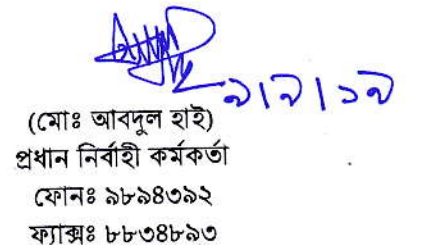 ৯।৯।১৯
(মোঃ আবদুল হাই)
প্রধান নির্বাহী কর্মকর্তা
ফোনঃ ৯৮৯৪৩৯২
ফ্যাক্সঃ ৮৮৩৪৮৯৩